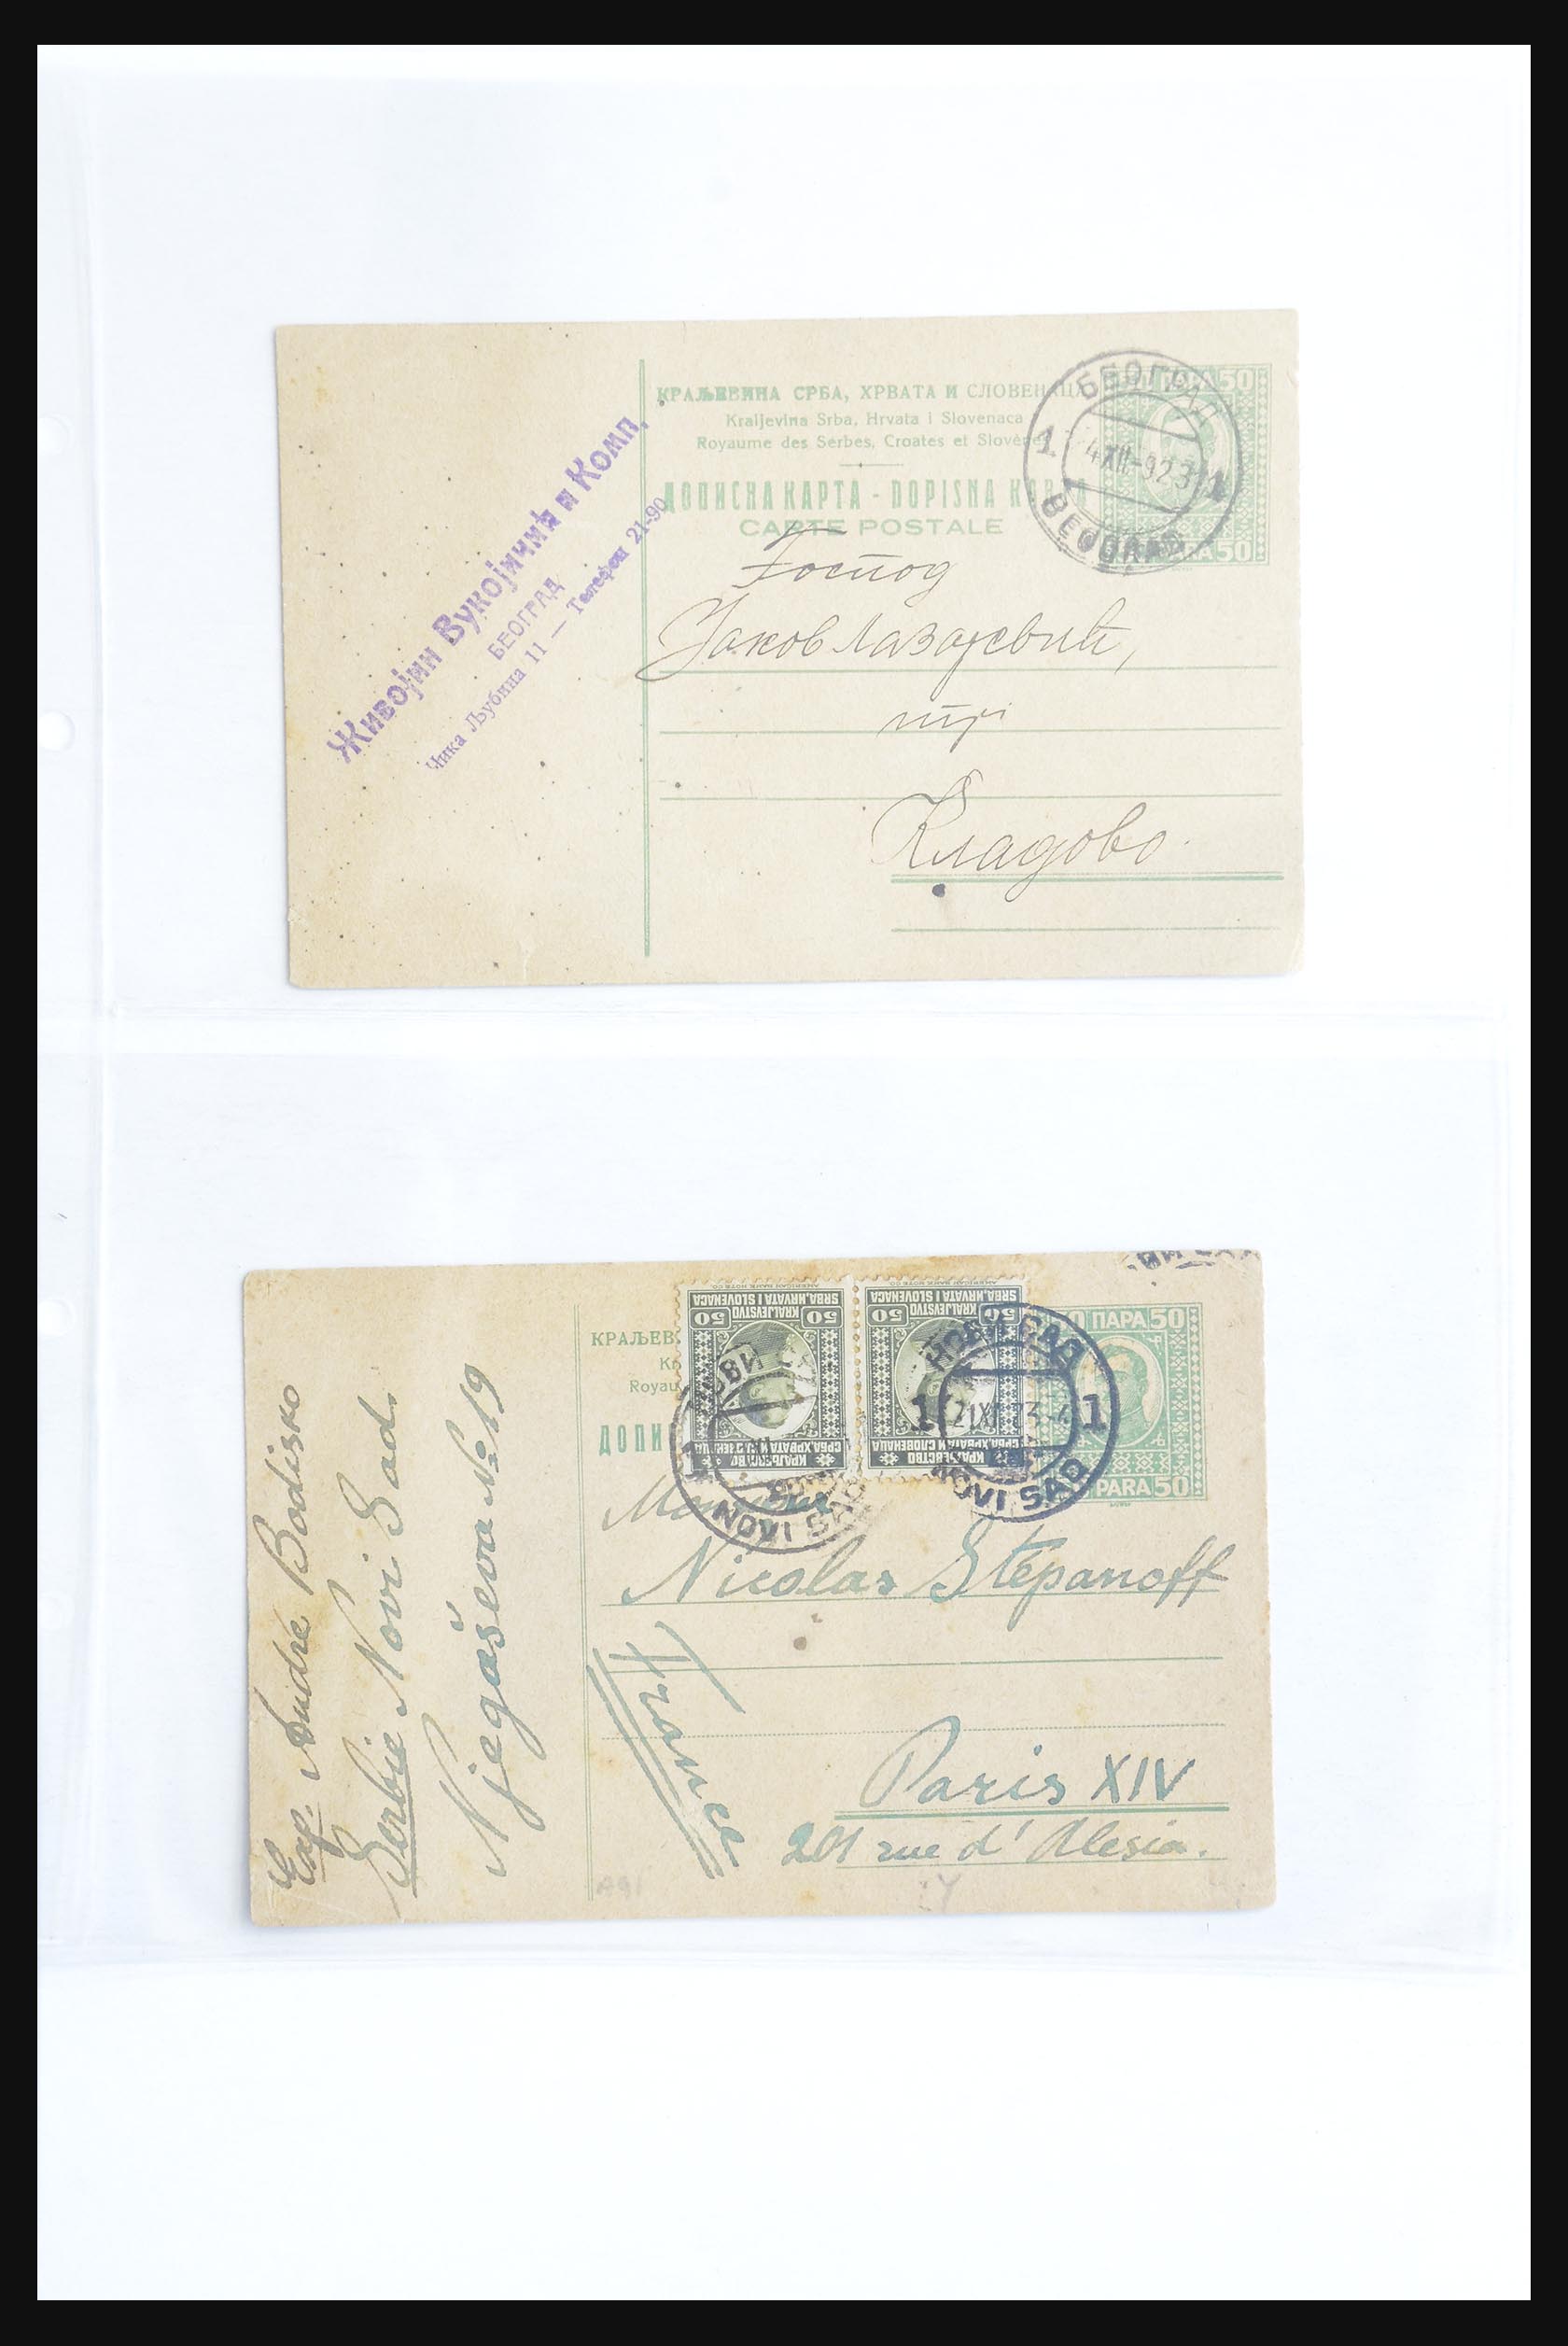 КРАЉЕВИНА СРБА, ХРВАТА И СЛОВЕНАЦА
Kraljevina Srba, Hrvata i Slovenaca
Royaume des Serbes, Croates et Slovène
ДОПИСНА КАРТА - DOPISNA KARTA
CARTE POSTALE
ПАРА 50
50
БЕОГРАД
1 4 XII-923 1
BEOGRAD
Живојин Вукојичић и Комп.
БЕОГРАД
Чика Љубина 11 — Телефон 21-90
Господ
Јаков Лазаревић,
трг
Кладово.
КРАЉЕВ
Kr
Royau
ДОПИ
AMERICAN BANK NOTE CO.
SRBA, HRVATA I SLOVENACA
KRALJEVSTVO
50 50
КРАЉЕВСТВО
СРБА, ХРВАТА И СЛОВЕНАЦА
AMERICAN BANK NOTE CO.
SRBA, HRVATA I SLOVENACA
KRALJEVSTVO
50 50
КРАЉЕВСТВО
СРБА, ХРВАТА И СЛОВЕНАЦА
ПАРА 50
PARA 50
НОВИ САД
1 1
NOVI SAD
NOVI SAD
Monsieur
Nicolas Stepanoff
France
Paris XIV
201 rue d'Alesia.
Exp. André Bodisko
Serbie Novi Sad.
Njegaševa № 19
A91